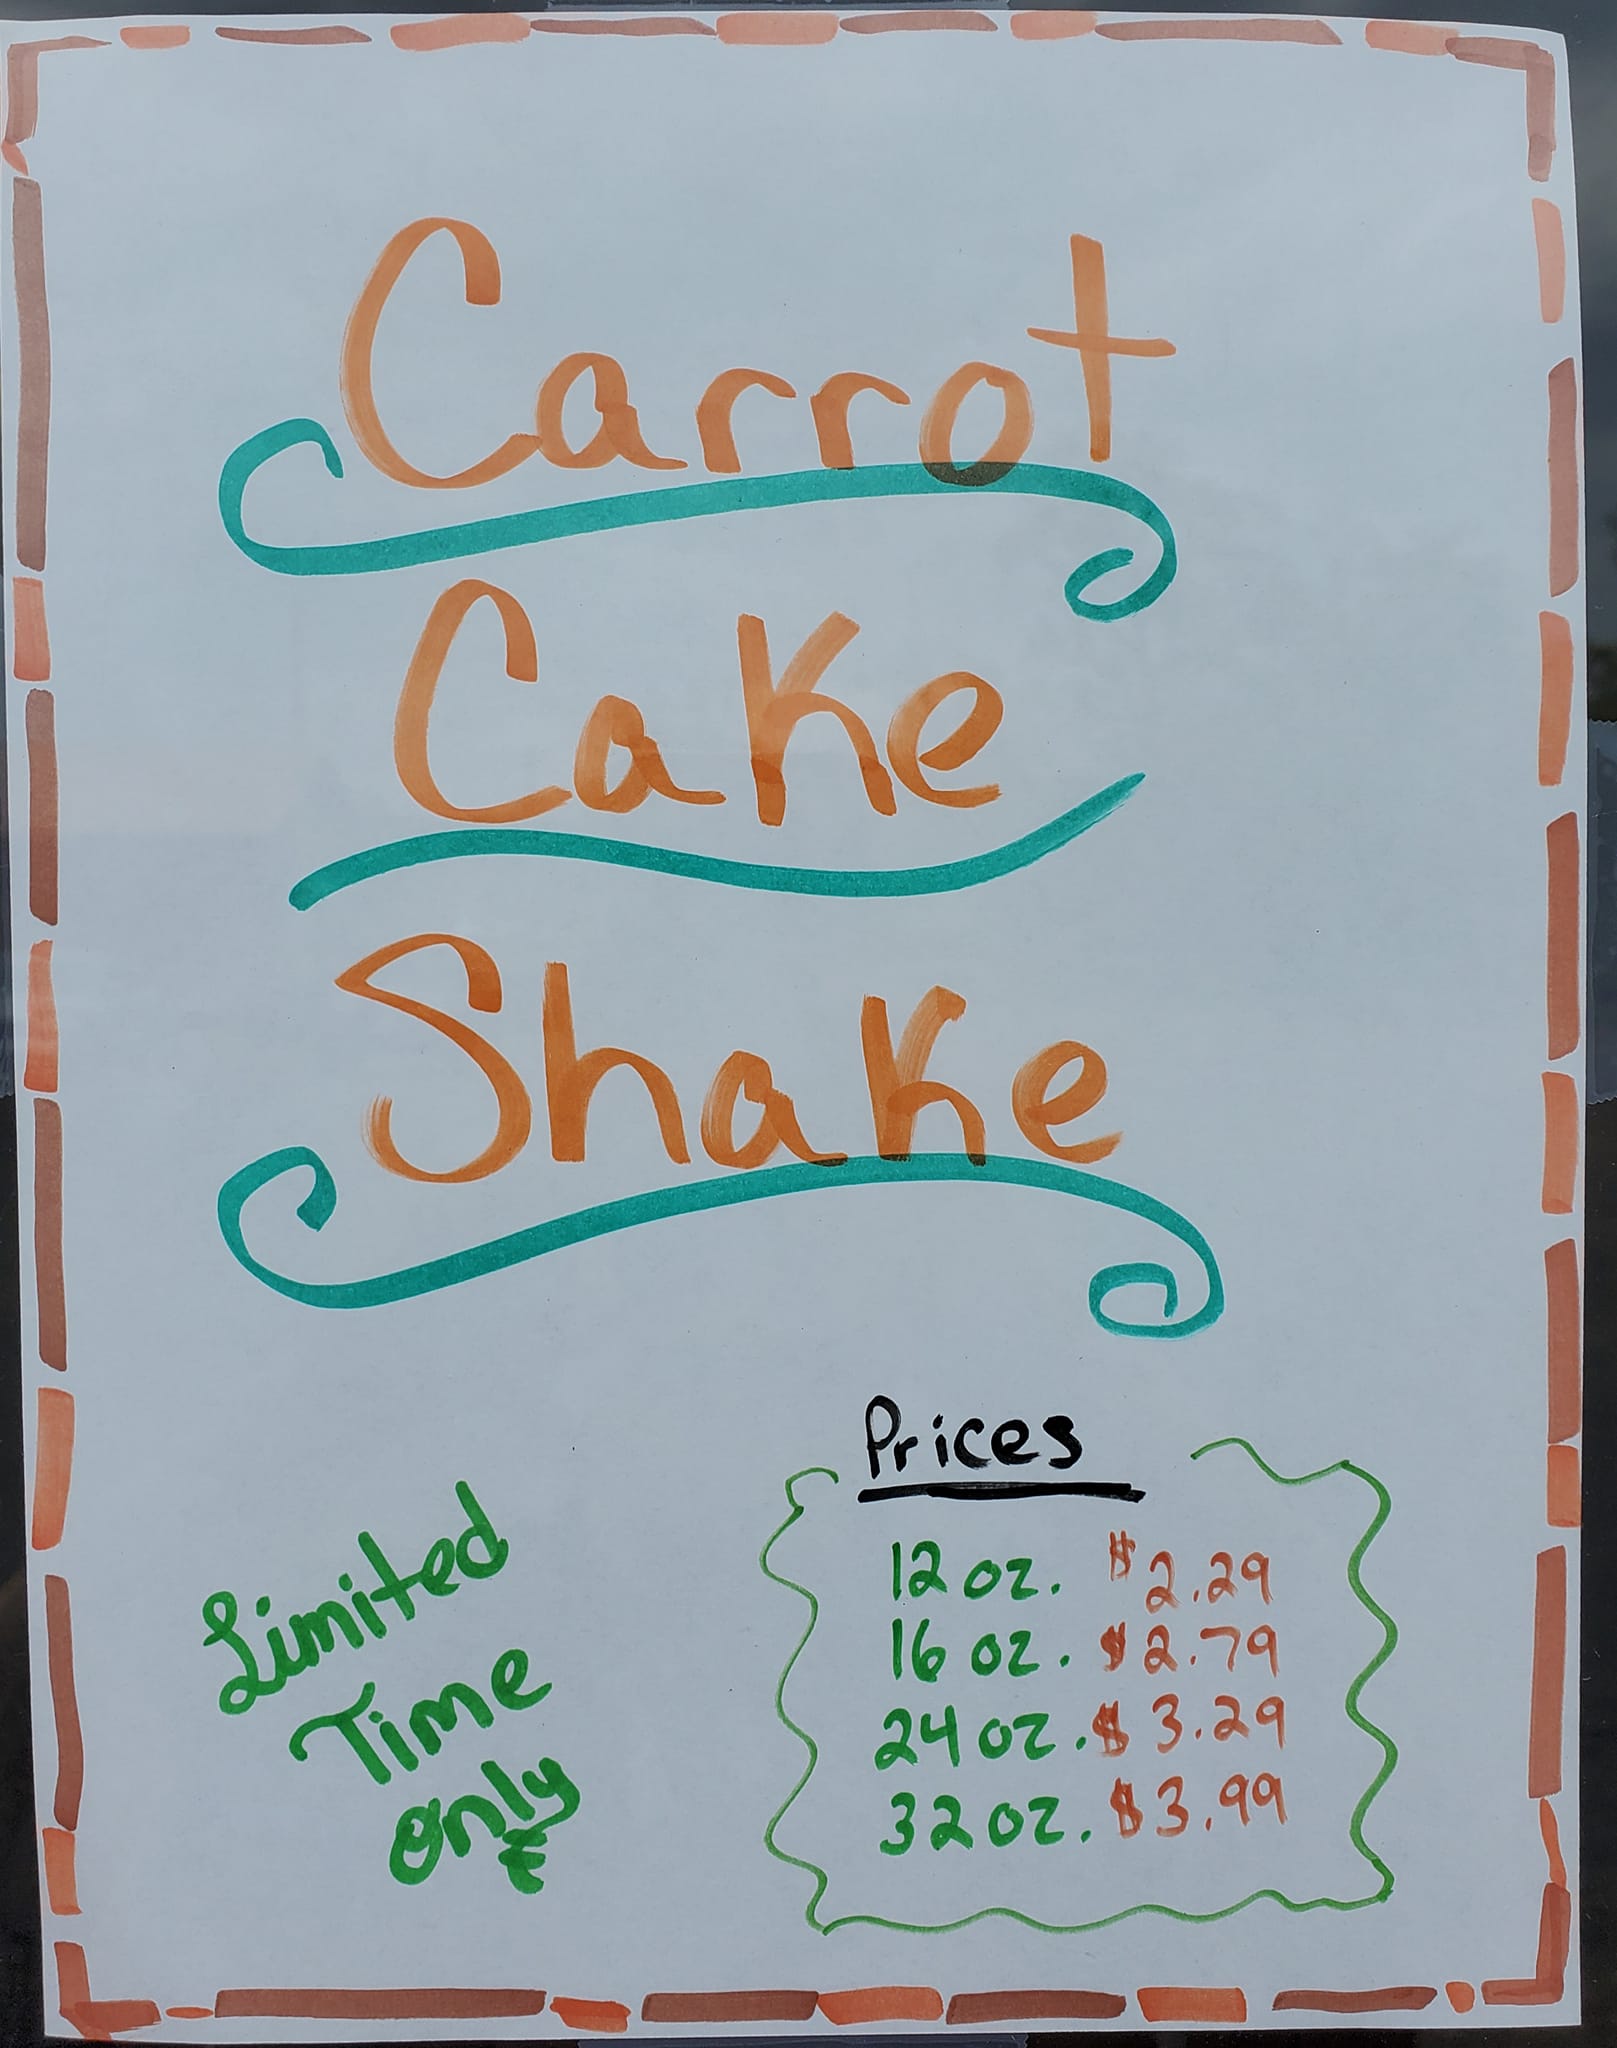 Carrot
Cake
Shake
Limited
Time
only
Prices
12 oz. $2.29
16 oz. $2.79
24 oz. $3.29
32 oz. $3.99